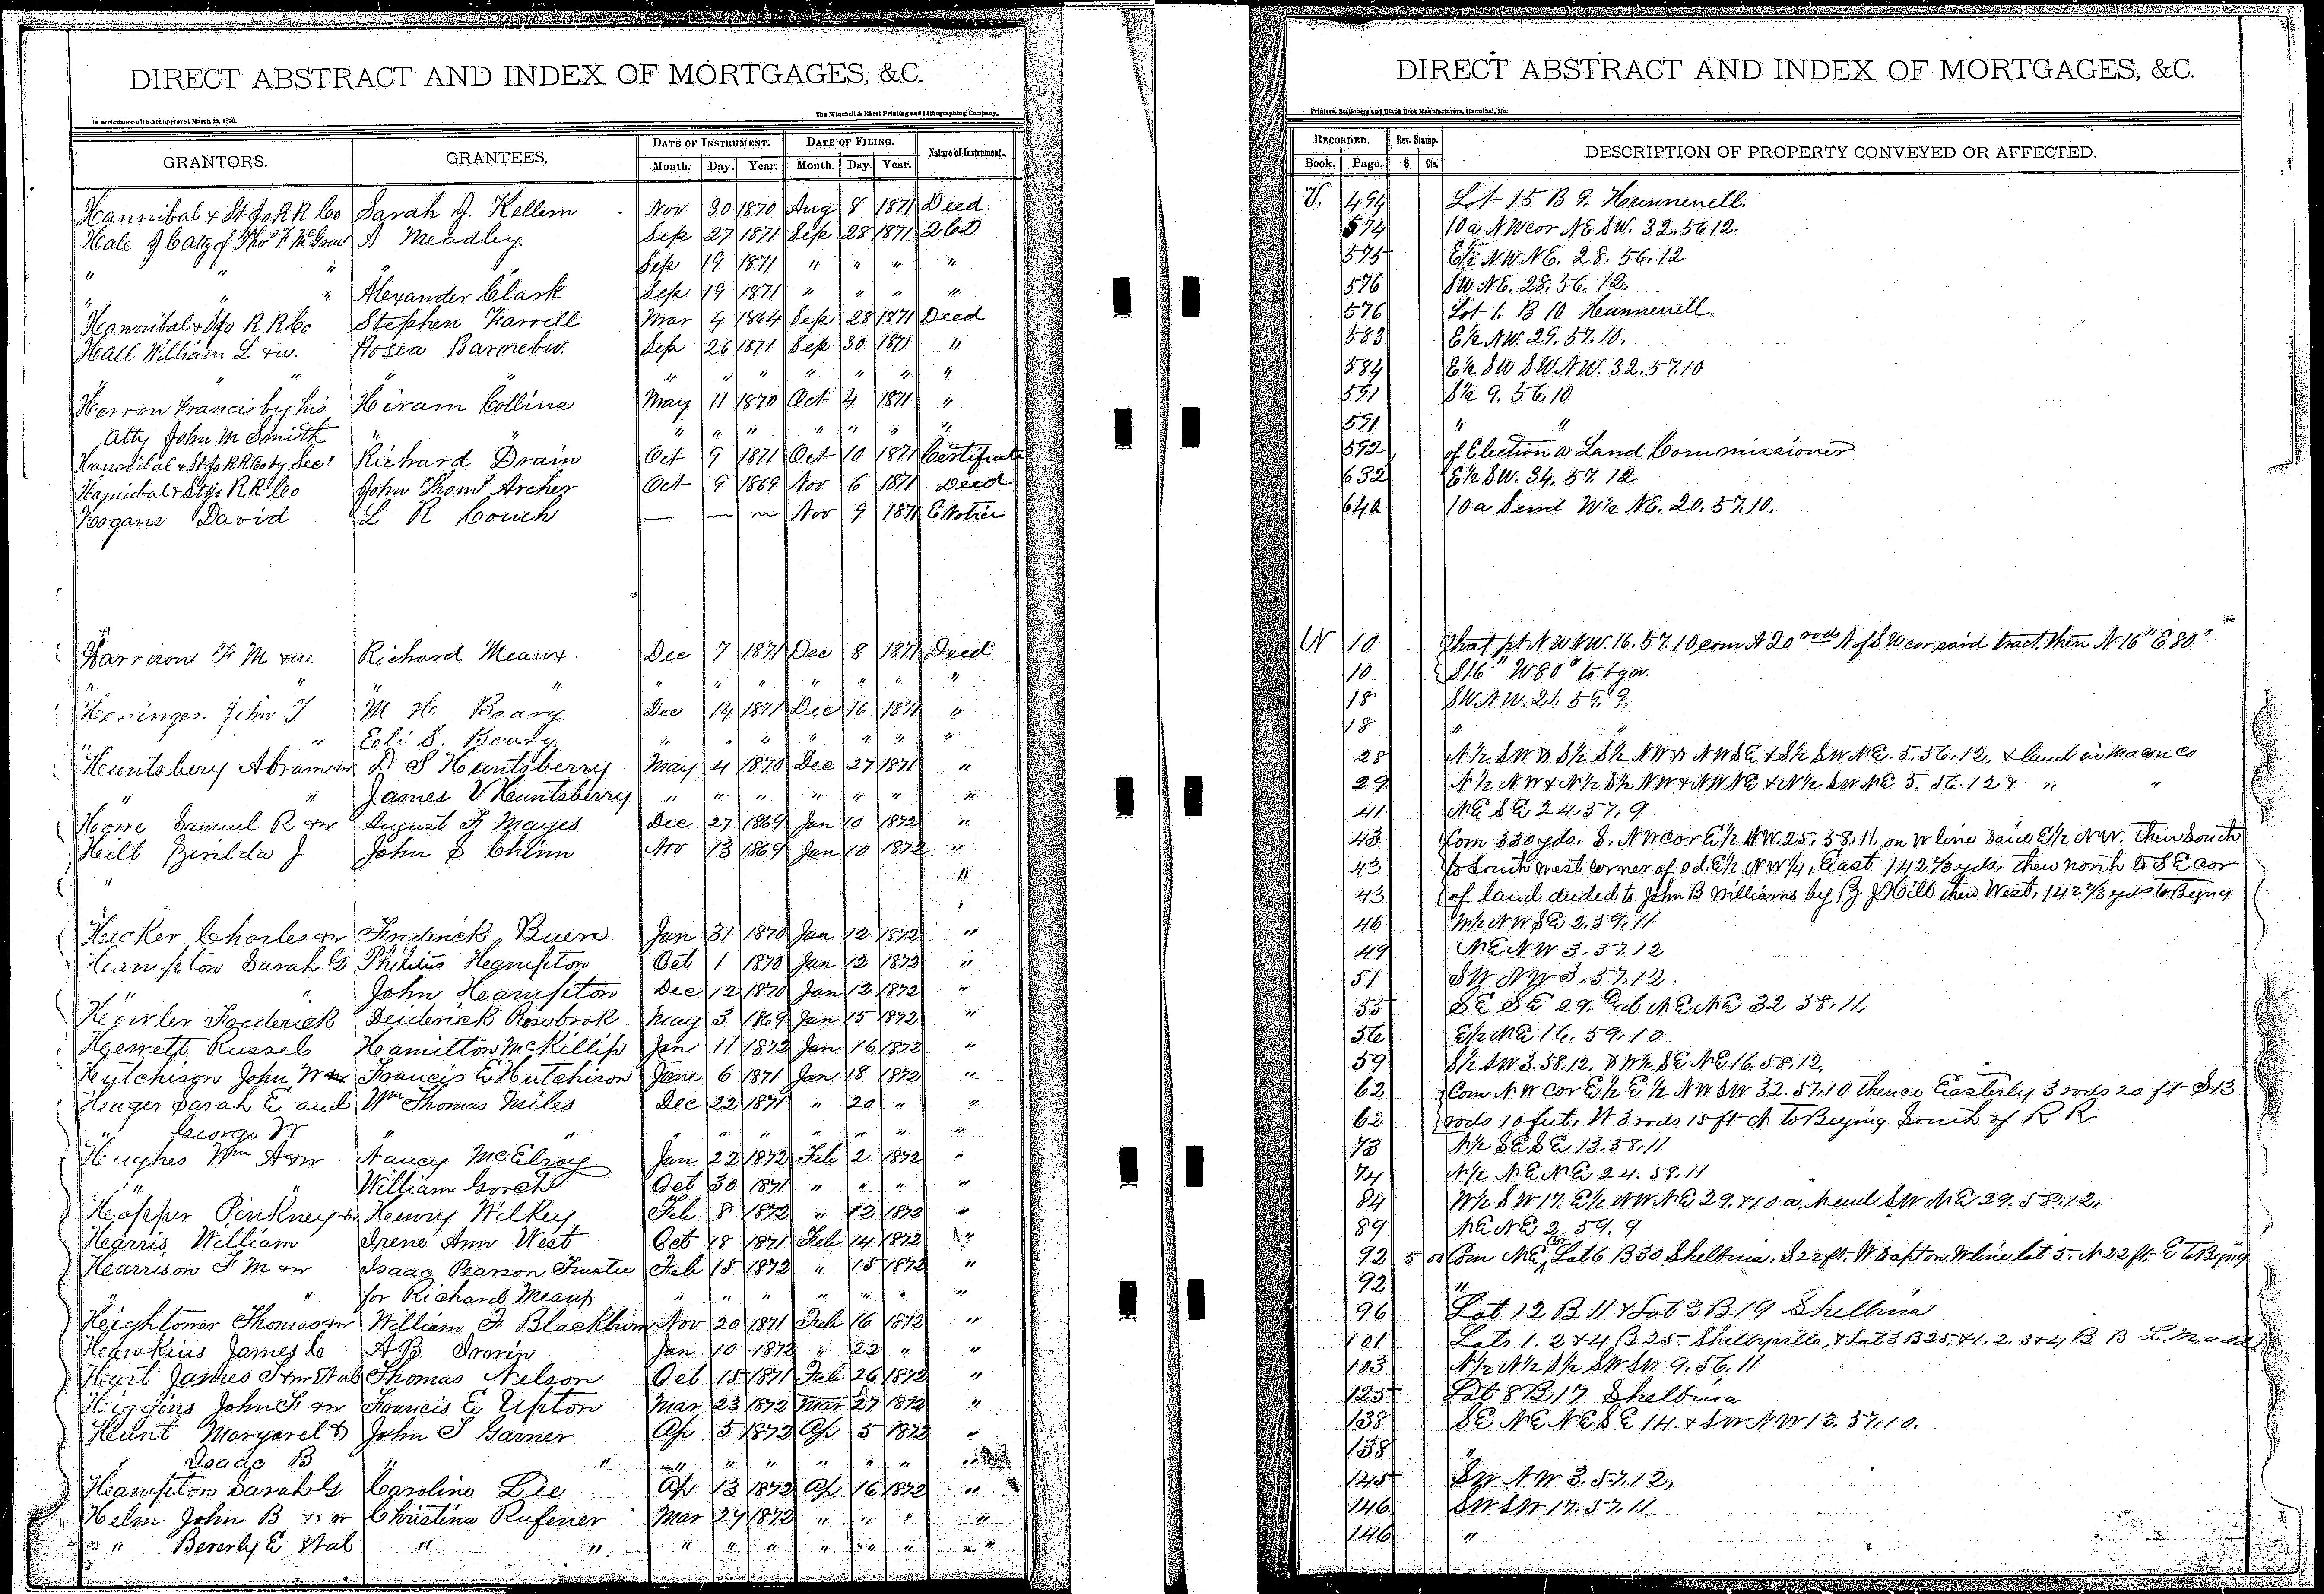 DIRECT ABSTRACT AND INDEX OF MORTGAGES, &C.
In accordance with Act approved March 25, 1870.
The Winchell & Ebert Printing and Lithographing Company,
GRANTORS. GRANTEES, DATE OF INSTRUMENT. DATE OF FILING. Nature of Instrument.
Month. Day. Year. Month. Day. Year.
Hannibal & St Jo R R Co Sarah J. Kellem Nov 30 1870 Aug 8 1871 Deed
Hale J C atty of Thos F McGrew A Meadley. Sep 27 1871 Sep 28 1871 2 C D
" " " " Sep 19 1871 " " " "
" " " Alexander Clark Sep 19 1871 " " " "
Hannibal & St Jo R R Co Stephen Farrell Mar 4 1864 Sep 28 1871 Deed
Hall William L & w. Hosea Sep 26 1871 Sep 30 1871 "
" " " " " " " " " " "
Herron Francis by his Hiram Collins May 11 1870 Oct 4 1871 "
Atty John M Smith " " " " " " " " "
Hannibal & St Jo R R Co by Secy Richard Drain Oct 9 1871 Oct 10 1871 Certificate
Hannibal & St Jo R R Co John Thoms Archer Oct 9 1869 Nov 6 1871 Deed
Hogans David L R Couch — — ~ Nov 9 1871 E Notice
Harrison F M & w. Richard Meaux Dec 7 1871 Dec 8 1871 Deed
" " " " " " " " " " "
Heninger. John T M H. Beary Dec 14 1871 Dec 16 1871 "
" " Eoli S. Beary " " " " " " "
Huntsbery Abram & w D S Huntsberry May 4 1870 Dec 27 1871 "
" " James V Huntsberry " " " " " " "
Howe Samuel R & w August F Mayes Dec 27 1869 Jan 10 1872 "
Hill Zerilda J John S Chinn Nov 13 1869 Jan 10 1872 "
" "
Hucker Charles & w Frederick Buere Jan 31 1870 Jan 12 1872 "
Hampton Sarah G Hampton Oct 1 1870 Jan 12 1872 "
" " John Hampton Dec 12 1870 Jan 12 1872 "
Frederick Deiderick Rosebrok May 3 1869 Jan 15 1872 "
Hewett Russel Hamilton McKillip Jan 11 1872 Jan 16 1872 "
Hutchison John W & w Francis E Hutchison June 6 1871 Jan 18 1872 "
Hager Sarah E and Wm Thomas Miles Dec 22 1871 " 20 " "
" George W " " " " " " " " "
Hughes Wm A & w Nancy McElroy Jan 22 1872 Feb 2 1872 "
" " William Gooch Oct 30 1871 " " " "
Hopper Pinkney & w Henry Wilkey Feb 8 1872 " 12 1872 "
Harris William Irene Ann West Oct 18 1871 Feb 14 1872 "
Harrison F M & w Isaac Pearson Trustee Feb 15 1872 " 15 1872 "
" " for Richard Meaux " " " " " " "
Hightower Thomas & w William F Blackburn Nov 20 1871 Feb 16 1872 "
Hawkins James C A B Irwin Jan 10 1872 " 22 " "
Hart James S & w et al Thomas Nelson Oct 15 1871 Feb 26 1872 "
Higgins John F & w Francis E Upton Mar 23 1872 Mar 27 1872 "
Hunt Margaret & John T Garner Ap 5 1872 Ap 5 1872 "
" Isaac B " " " " " " " " "
Hampton Sarah G Caroline Lee Ap 13 1872 Ap 16 1872 "
Helm John B Christina Rufener Mar 27 1872 " " " "
" " Beverly E et al " " " " " " " " "
DIRECT ABSTRACT AND INDEX OF MORTGAGES, &C.
Printers, Stationers and Blank Book Manufacturers, Hannibal, Mo.
RECORDED. Rev. Stamp. DESCRIPTION OF PROPERTY CONVEYED OR AFFECTED.
Book. Page. $ Cts.
V. 494 Lot 15 B 9. Hunnewell.
574 10 a NW cor NE SW. 32.56.12.
575 E½ NW NE. 28.56.12
576 SW NE. 28.56.12.
576 Lot 1. B 10 Hunnewell.
583 E½ NW. 29.57.10.
584 E½ SW SW NW. 32.57.10
591 S½ 9.56.10
591 " "
592 of Election a Land Commissioner
632 E½ SW. 34.57.12
642 10 a S end W½ NE. 20.57.10.
W 10 That pt NW NW. 16.57.10 com A 20 rods N of SW cor said tract, then N 16" E 80"
10 S 16" W 80" to bgn.
18 SW NW. 21.59.9.
18 " "
28 N½ SW & S½ S½ NW & NW SE & S½ SW NE. 5.56.12. & land in Macon Co
29 N½ NW & N½ S½ NW & NW NE & N½ SW NE 5.56.12 & " "
41 NE SE 24.57.9
43 Com 330 yds. S. NW cor E½ NW. 25.58.11. on W line said E½ NW. then South
43 to South west corner of sd E½ NW¼, East 142⅔ yds, then north to SE cor
43 of land deeded to John B Williams by Z J Hill then West, 142⅔ yds to Beging
46 W½ NW SE 2.59.11
49 NE NW 3.57.12
51 SW NW 3.57.12.
55 SE SE 29. NE NE 32 58.11.
56 E½ NE 16.59.10
59 S½ SW 3.58.12, & W½ SE NE 16.58.12,
62 Com NW cor E½ E½ NW SW 32.57.10 thence Easterly 3 rods 20 ft S 13
62 rods 10 feet, W 3 rods 15 ft N to Beging South of R R
73 N½ SE SE 13.58.11
74 N½ NE NE 24.58.11
84 W½ SW 17. E½ NW NE 29. & 10 a. N end SW NE 29.58.12.
89 NE NE 2.59.9
92 5 00 Com NE cor Lot 6 B 30 Shelbina. S 22 ft. W to W line lot 5. N 22 ft. E to Beging
92 "
96 Lot 12 B 11 & Lot 3 B 19 Shelbina
101 Lots 1. 2 & 4 B 25 Shelbyville, & Lot 3 B 25, & 1. 2. 3 & 4 B B
103 N½ N½ S½ SW SW 9.56.11
125 Lot 8 B 17 Shelbina
138 SE NE NE SE 14. & SW NW 13.57.10.
138 "
145 SW NW 3.57.12,
146 SW SW 17.57.11
146 "